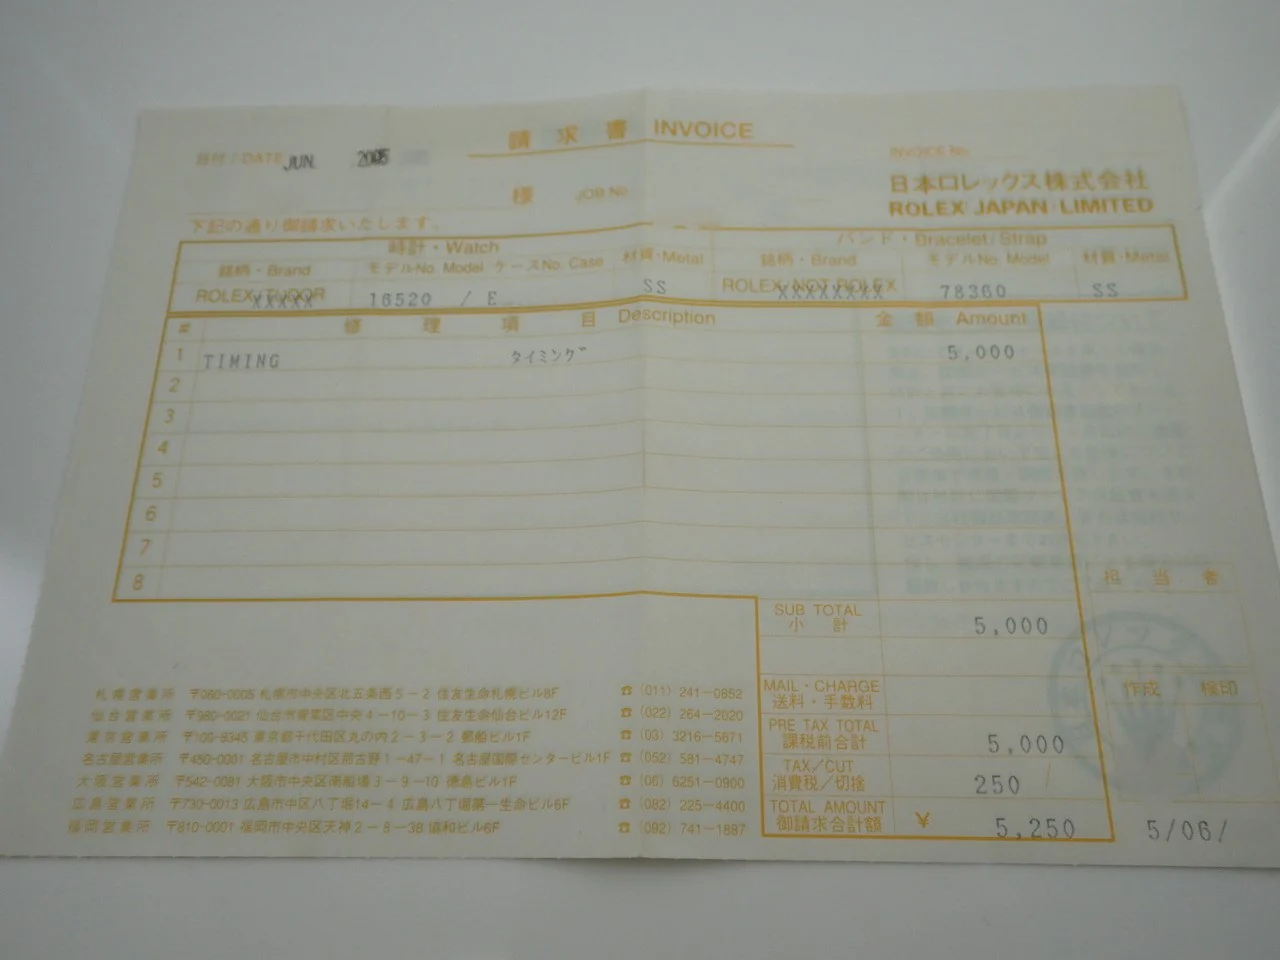 請求書 INVOICE
日付 / DATE JUN. 2005
INVOICE No.
様 JOB No.
日本ロレックス株式会社
ROLEX JAPAN LIMITED
下記の通り御請求いたします。
時計・Watch
バンド・Bracelet/Strap
銘柄・Brand モデルNo. Model ケースNo. Case 材質・Metal 銘柄・Brand モデルNo. Model 材質・Metal
ROLEX/TUDOR XXXXX 16520 / E SS ROLEX NOT ROLEX XXXXXXXX 78360 SS
# 修理項目 Description 金額 Amount
1 TIMING タイミング 5,000
2
3
4
5
6
7
8
担当者
SUB TOTAL
小計 5,000
作成 検印
MAIL・CHARGE
送料・手数料
PRE TAX TOTAL
課税前合計 5,000
TAX/CUT
消費税/切捨 250
TOTAL AMOUNT
御請求合計額 ¥ 5,250
5/06/
札幌営業所 〒060-0005 札幌市中央区北五条西5-2 住友生命札幌ビル8F ☎(011) 241-0652
仙台営業所 〒980-0021 仙台市青葉区中央4-10-3 住友生命仙台ビル12F ☎(022) 264-2020
東京営業所 〒100-8345 東京都千代田区丸の内2-3-2 郵船ビル1F ☎(03) 3216-5671
名古屋営業所 〒450-0001 名古屋市中村区那古野1-47-1 名古屋国際センタービル1F ☎(052) 581-4747
大阪営業所 〒542-0081 大阪市中央区南船場3-9-10 徳島ビル1F ☎(06) 6251-0900
広島営業所 〒730-0013 広島市中区八丁堀14-4 広島八丁堀第一生命ビル6F ☎(082) 225-4400
福岡営業所 〒810-0001 福岡市中央区天神2-8-38 協和ビル6F ☎(092) 741-1887